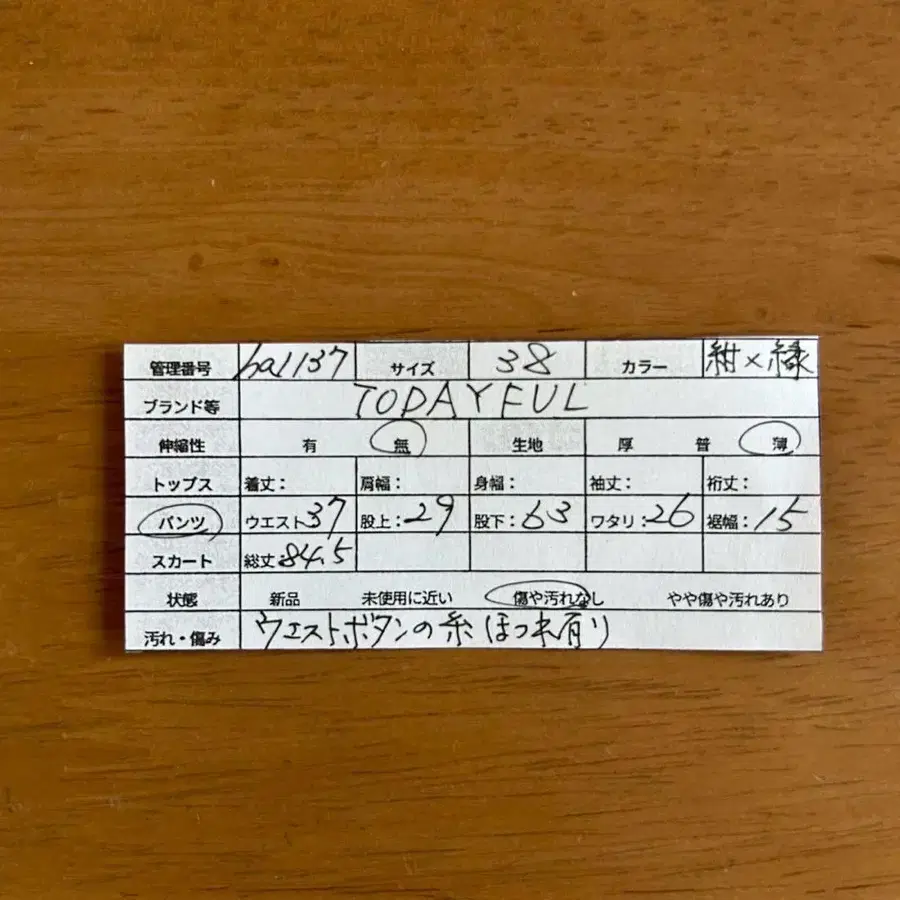 管理番号 ha1137 サイズ 38 カラー 紺×緑
ブランド等 TODAYFUL
伸縮性 有 無 生地 厚 普 薄
トップス 着丈: 肩幅: 身幅: 袖丈: 裄丈:
パンツ ウエスト37 股上:29 股下:63 ワタリ:26 裾幅:15
スカート 総丈:84.5
状態 新品 未使用に近い 傷や汚れなし やや傷や汚れあり
汚れ・傷み ウエストボタンの糸ほつれ有り